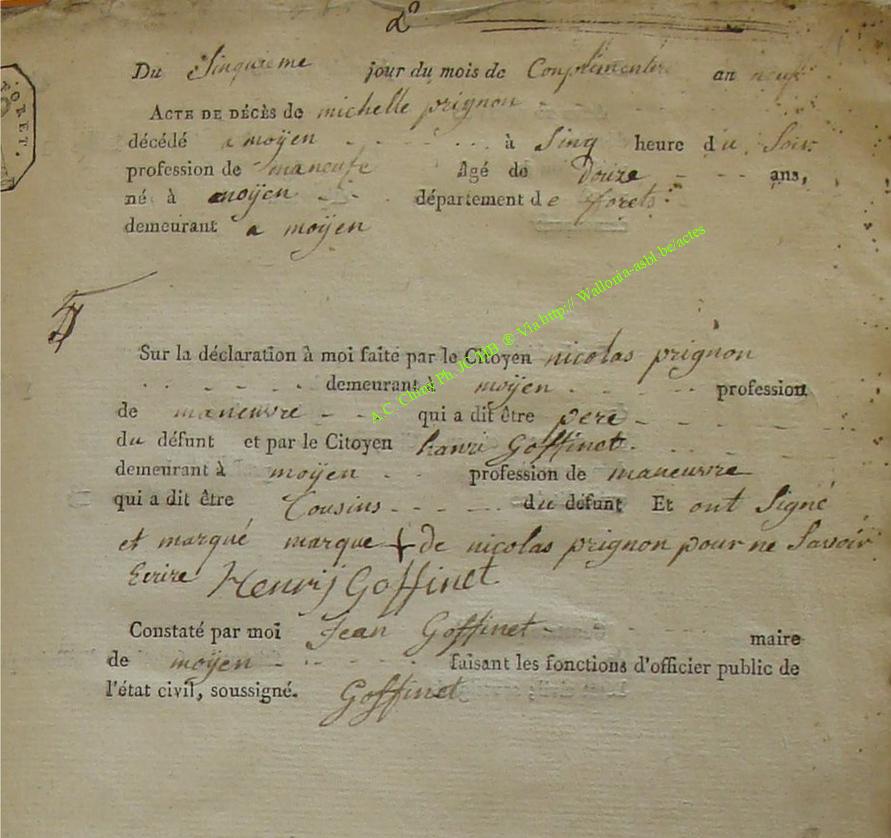 2
FORET.
Du Sinquieme jour du mois de Conplimentire an neuf
ACTE DE DÉCÈS de michelle prignon
décédé a moÿen à Sinq heure du Soir
profession de Agé de douze ans,
né à moÿen département de forets
demeurant a moÿen
Sur la déclaration à moi faite par le Citoyen nicolas prignon
demeurant à moÿen profession
de maneuvre qui a dit être pere
du défunt et par le Citoyen hanri Goffinet.
demeurant à moÿen profession de maneuvre
qui a dit être Cousins du défunt Et ont Signé
et marqué marque + de nicolas prignon pour ne Savoir
Ecrire Henrij Goffinet
Constaté par moi Jean Goffinet maire
de moÿen faisant les fonctions d'officier public de
l'état civil, soussigné. Goffinet
A.C. Chiny Ph. JCMB ® Via http:// Wallonia-asbl.be/actes